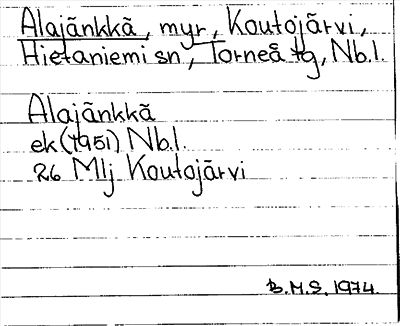 Alajänkkä, myr, Koutojärvi,
Hietaniemi sn, Torneå tg, Nb.l.
Alajänkkä
ek (1951) Nb.l.
26 Mlj Koutojärvi
B.M.S. 1974.